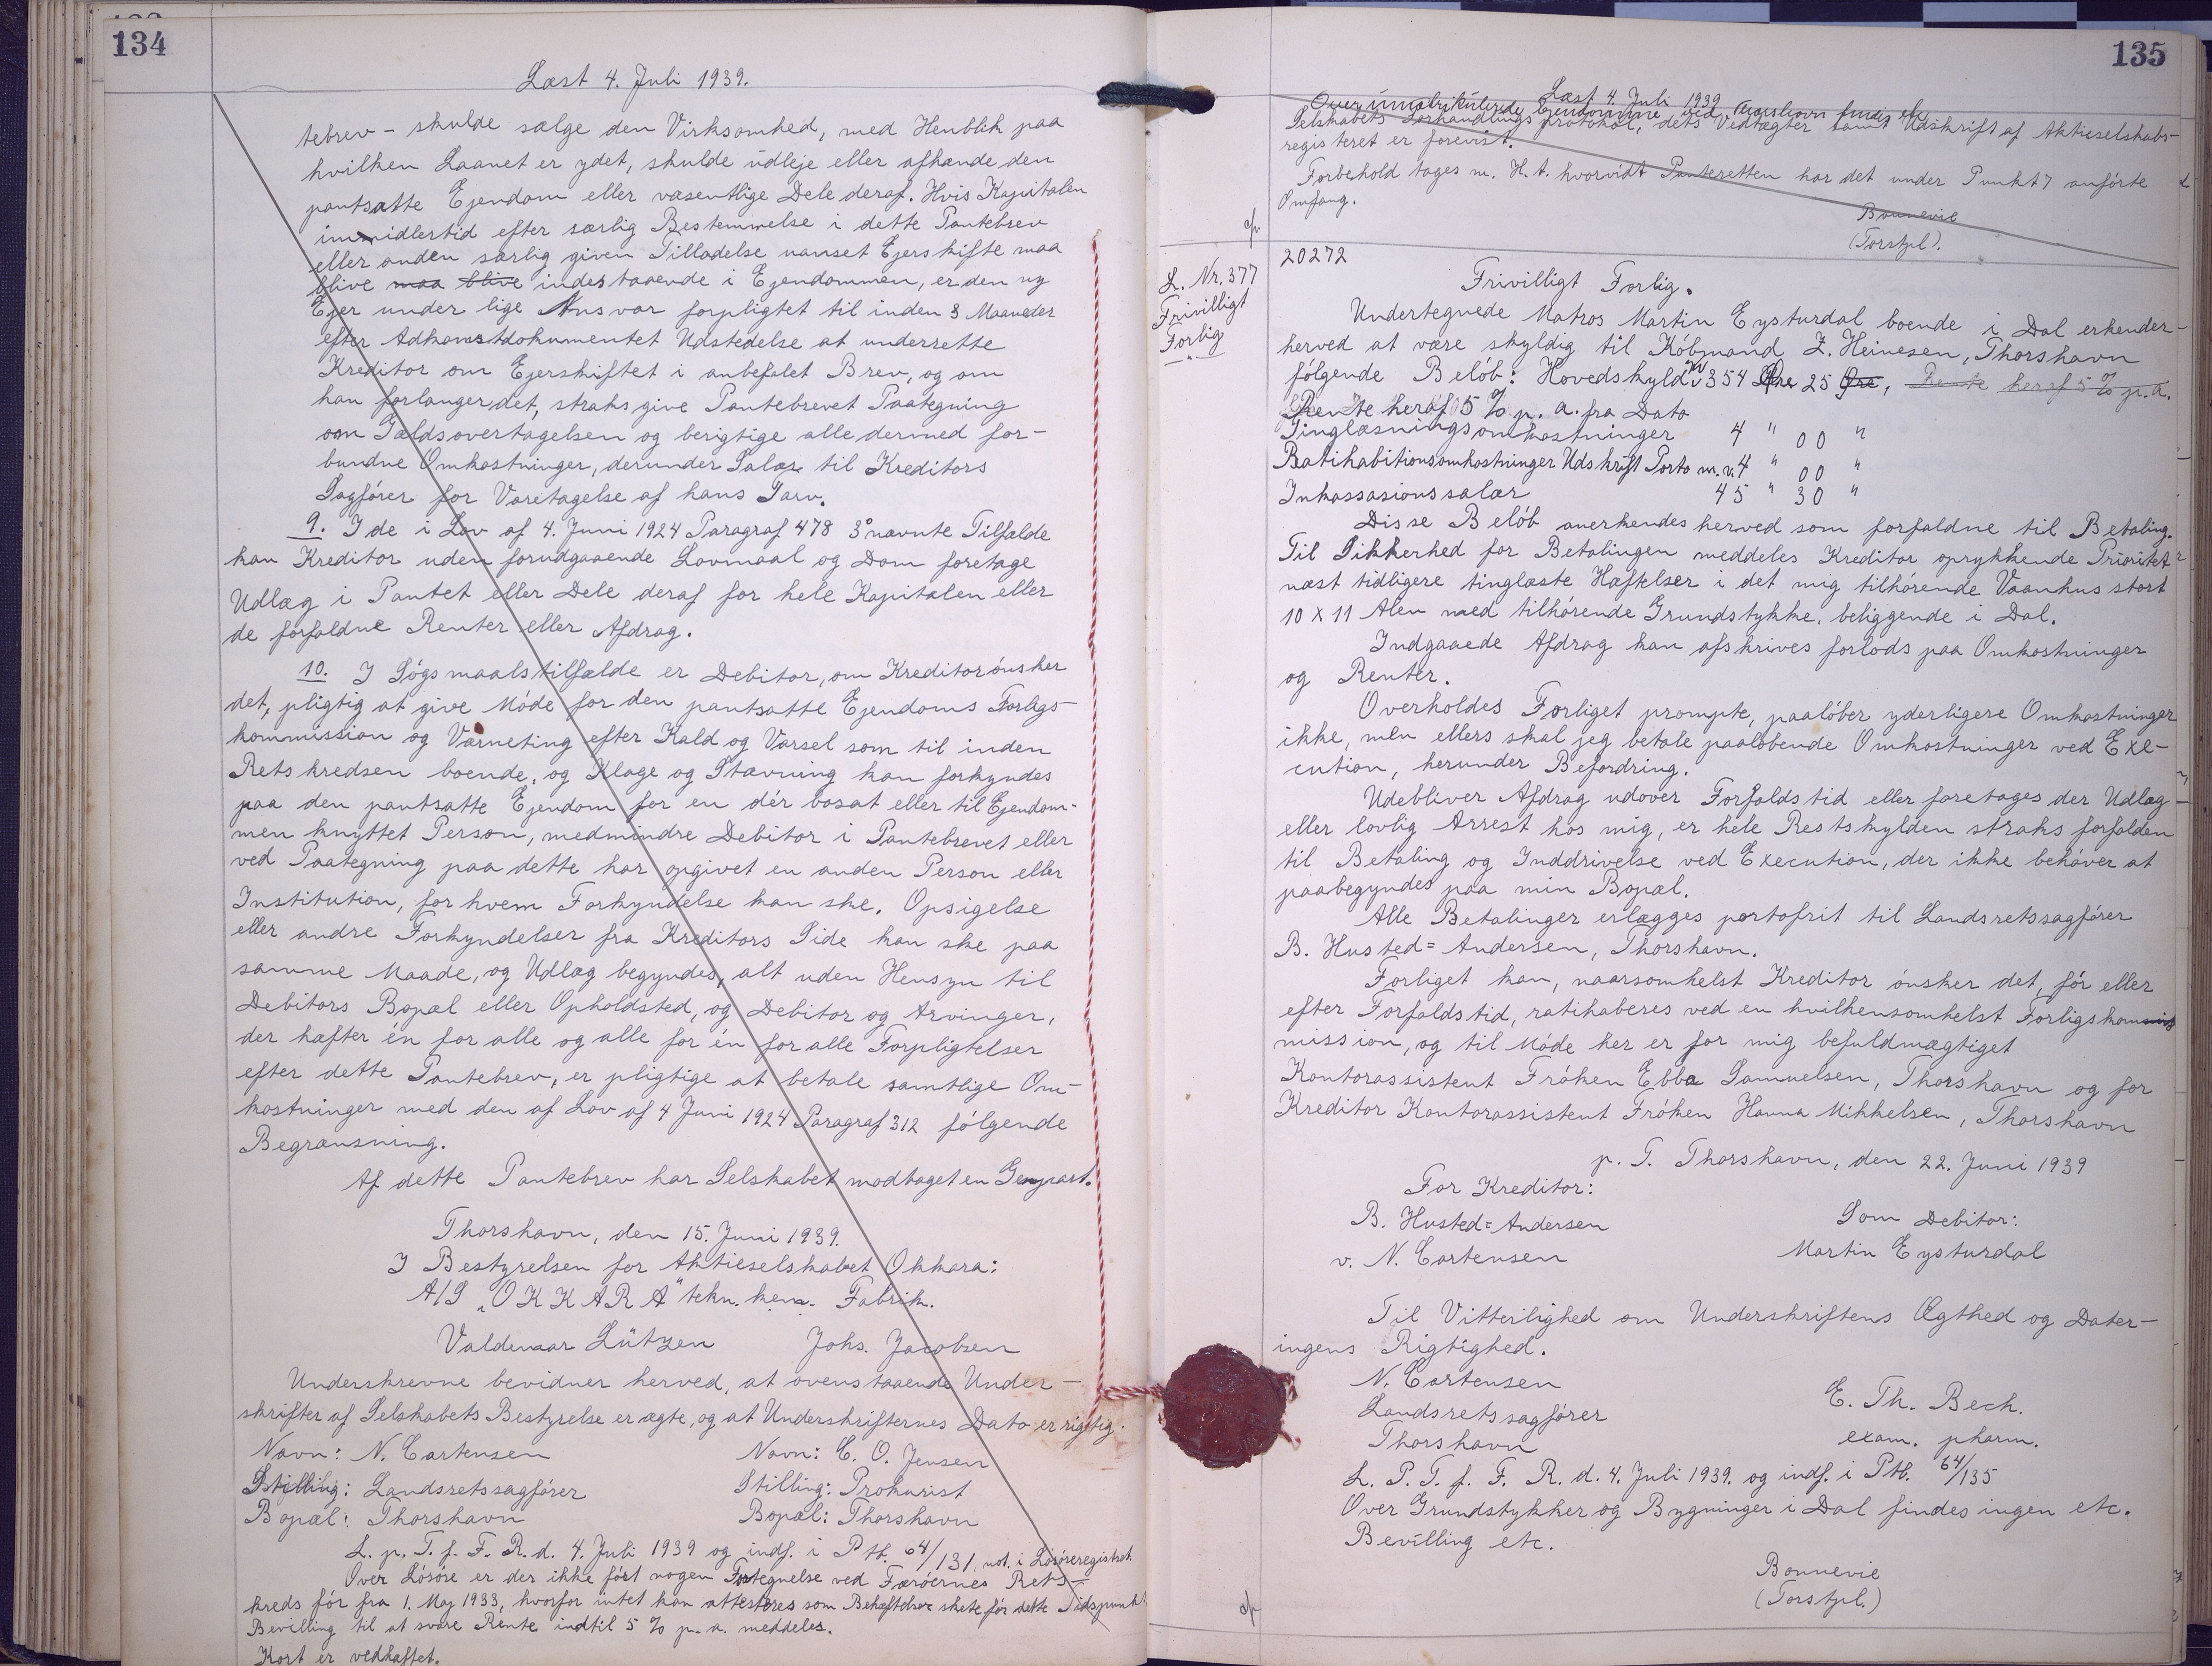 134
Læst 4. Juli 1939.
tebrev - skulde sælge den Virksomhed, med Henblik paa
hvilken Laanet er ydet, skulde udleje eller afhænde den
pantsatte Ejendom eller væsentlige Dele deraf. Hvis Kapitalen
imidlertid efter særlig Bestemmelse i dette Pantebrev
eller anden særlig given Tilladelse uanset Ejerskifte maa
blive maa blive indestaaende i Ejendommen, er den ny
Ejer under lige Ansvar forpligtet til inden 3 Maaneder
efter Adkomstdokumentet Udstedelse at underrette
Kreditor om Ejerskiftet i anbefalet Brev, og om
han forlanger det, straks give Pantebrevet Paategning
om Gældsovertagelsen og berigtige alle dermed for-
bundne Omkostninger, derunder Salær til Kreditors
Sagfører for Varetagelse af hans Tarv.
9. I de i Lov af 4. Juni 1924 Paragraf 478 3° nævnte Tilfælde
kan Kreditor uden forudgaaende Lovmaal og Dom foretage
Udlæg i Pantet eller Dele deraf for hele Kapitalen eller
de forfaldne Renter eller Afdrag.
10. I Søgsmaalstilfælde er Debitor, om Kreditor ønsker
det, pligtig at give Møde for den pantsatte Ejendoms Forligs-
kommission og Værneting efter Kald og Varsel som til inden
Retskredsen boende, og Klage og Stævning kan forkyndes
paa den pantsatte Ejendom for en dér bosat eller til Ejendom-
men knyttet Person, medmindre Debitor i Pantebrevet eller
ved Paategning paa dette har opgivet en anden Person eller
Institution, for hvem Forkyndelse kan ske. Opsigelse
eller andre Forkyndelser fra Kreditors Side kan ske paa
samme Maade, og Udlæg begyndes, alt uden Hensyn til
Debitors Bopæl eller Opholdsted, og Debitor og Arvinger,
der hæfter én for alle og alle for én for alle Forpligtelser
efter dette Pantebrev, er pligtige at betale samtlige Om-
kostninger med den af Lov af 4 Juni 1924 Paragraf 312 følgende
Begrænsning.
Af dette Pantebrev har Selskabet modtaget en Genpart.
Thorshavn, den 15. Juni 1939.
I Bestyrelsen for Aktieselskabet Okkara:
A/S "OKKARA" tekn. kem. Fabrik.
Valdemar Lützen Johs. Jacobsen
Underskrevne bevidner herved, at ovenstaaende Under-
skrifter af Selskabets Bestyrelse er ægte, og at Underskrifternes Dato er rigtig.
Navn: N. Cartensen Navn: C. O. Jensen
Stilling: Landsretssagfører Stilling: Prokurist
Bopæl: Thorshavn Bopæl: Thorshavn
L. p. T. f. F. R. d. 4. Juli 1939 og indf. i Ptb. 64/131, not. i Løsøreregistret.
Over Løsøre er der ikke ført nogen Fortegnelse ved Færøernes Rets-
kreds før fra 1. Maj 1933, hvorfor intet kan attesteres som Behæftelser skete før dette Tidspunkt
Bevilling til at svare Rente indtil 5 % p. a. meddeles.
Kort er vedhæftet.
135
Læst 4. Juli 1939
Over umatrikulerede Ejendomme ved Thorshavn findes etc
Selskabets Forhandlingsprotokol, dets Vedtægter samt Udskrift af Aktieselskabs-
registeret er forevist.
Forbehold tages m. H. t. hvorvidt Panteretten har det under Punkt 7 anførte
Omfang.
Bonnevie
(Torstpl).
20272
L. Nr. 377
Frivilligt
Forlig
Frivilligt Forlig.
Undertegnede Matros Martin Eysturdal boende i Dal erkender
herved at være skyldig til Købmand Z. Heinesen, Thorshavn
følgende Beløb: Hovedskyld Kr 354 Øre 25 Øre, Rente heraf 5 % p. a.
Rente heraf 5 % p. a. fra Dato
Tinglæsningsomkostninger 4 " 00 "
Ratihabitionsomkostninger Udskrift Porto m. v. 4 " 00 "
Inkassasionssalær 45 " 30 "
Disse Beløb anerkendes herved som forfaldne til Betaling.
Til Sikkerhed for Betalingen meddeles Kreditor oprykkende Prioritet
næst tidligere tinglæste Hæftelser i det mig tilhørende Vaanhus stort
10 x 11 Alen med tilhørende Grundstykke, beliggende i Dal.
Indgaaede Afdrag kan afskrives forlods paa Omkostninger
og Renter.
Overholdes Forliget prompte, paaløber yderligere Omkostninger
ikke, men ellers skal jeg betale paaløbende Omkostninger ved Exe-
cution, herunder Befordring.
Udebliver Afdrag udover Forfaldstid eller foretages der Udlæg
eller lovlig Arrest hos mig, er hele Restskylden straks forfalden
til Betaling og Inddrivelse ved Execution, der ikke behøver at
paabegyndes paa min Bopæl.
Alle Betalinger erlægges portofrit til Landsretssagfører
B. Husted=Andersen, Thorshavn.
Forliget kan, naarsomhelst Kreditor ønsker det, før eller
efter Forfaldstid, ratihaberes ved en hvilkensomhelst Forligskom
mission, og til Møde her er for mig befuldmægtiget
Kontorassistent Frøken Ebba Samuelsen, Thorshavn og for
Kreditor Kontorassistent Frøken Hanna Mikkelsen, Thorshavn
p. T. Thorshavn, den 22. Juni 1939
For Kreditor:
B. Husted=Andersen Som Debitor:
v. N. Cartensen Martin Eysturdal
Til Vitterlighed om Underskriftens Ægthed og Dater-
ingens Rigtighed.
N. Cartensen E. Th. Bech.
Landsretssagfører exam. pharm.
Thorshavn
L. P. T. f. F. R. d. 4. Juli 1939. og indf. i Ptb. 64/135
Over Grundstykker og Bygninger i Dal findes ingen etc.
Bevilling etc.
Bonnevie
(Torstpl.)